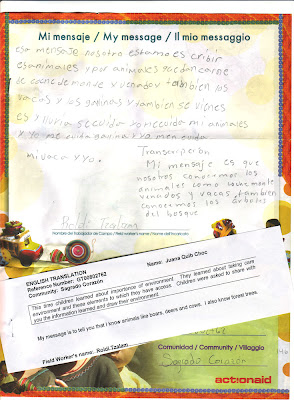 Mi mensaje / My message / Il mio messaggio
esa mensaje nosotro estamos escribir
es animales y por animales que dan carne
se coche de monte y venado y tambien los
vacas y los gallinas y tambien se vienes
es y lluvia se cuida mi animales
y yo me cuida gallina y yo men cuida
mi vaca y yo.
Transcripción
Mi mensaje es que
nosotros conocemos los
animales como coche monte
venados y vacas tambien
conocemos los árboles
del bosque
Roldi Tzalam
Nombre del trabajador de Campo / Field worker's name / Nome dell'incaricato
ENGLISH TRANSLATION
Name: Juana Quib Choc
Reference Number:
Community: Sagrado Corazón
This time children learned about importance of environment. They learned about taking care
environment and these elements to which they have access. Children were asked to share with
you the information learned and draw their environment.
My message is to tell you that I know animals like boars, deers and cows. I also know forest trees.
Field Worker's name: Roldi Tzalam
Comunidad / Community / Villaggio
Sagrado Corazon
actionaid